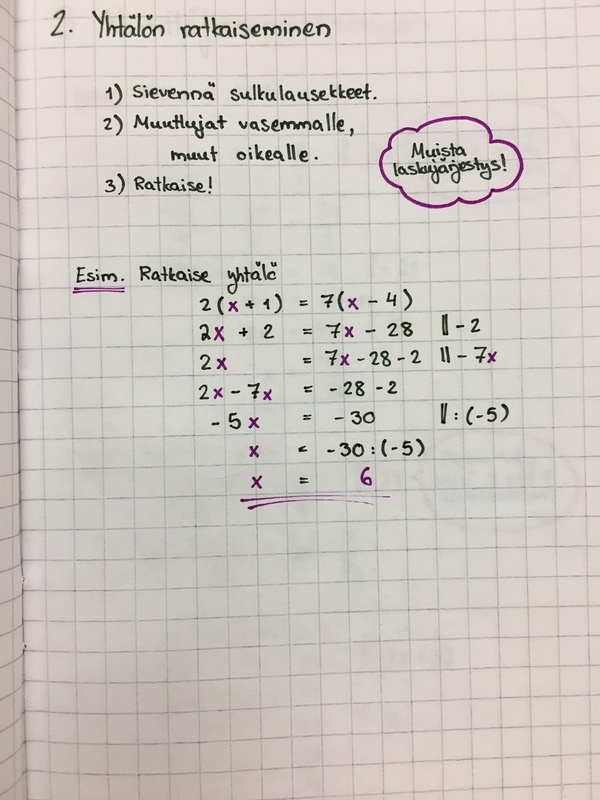 2. Yhtälön ratkaiseminen
1) Sievennä sulkulausekkeet.
2) Muuttujat vasemmalle,
muut oikealle.
3) Ratkaise!
Muista
laskujärjestys!
Esim. Ratkaise yhtälö
2(x + 1) = 7(x - 4)
2x + 2 = 7x - 28 || - 2
2x = 7x - 28 - 2 || - 7x
2x - 7x = - 28 - 2
- 5x = - 30 || : (-5)
x = -30 : (-5)
x = 6